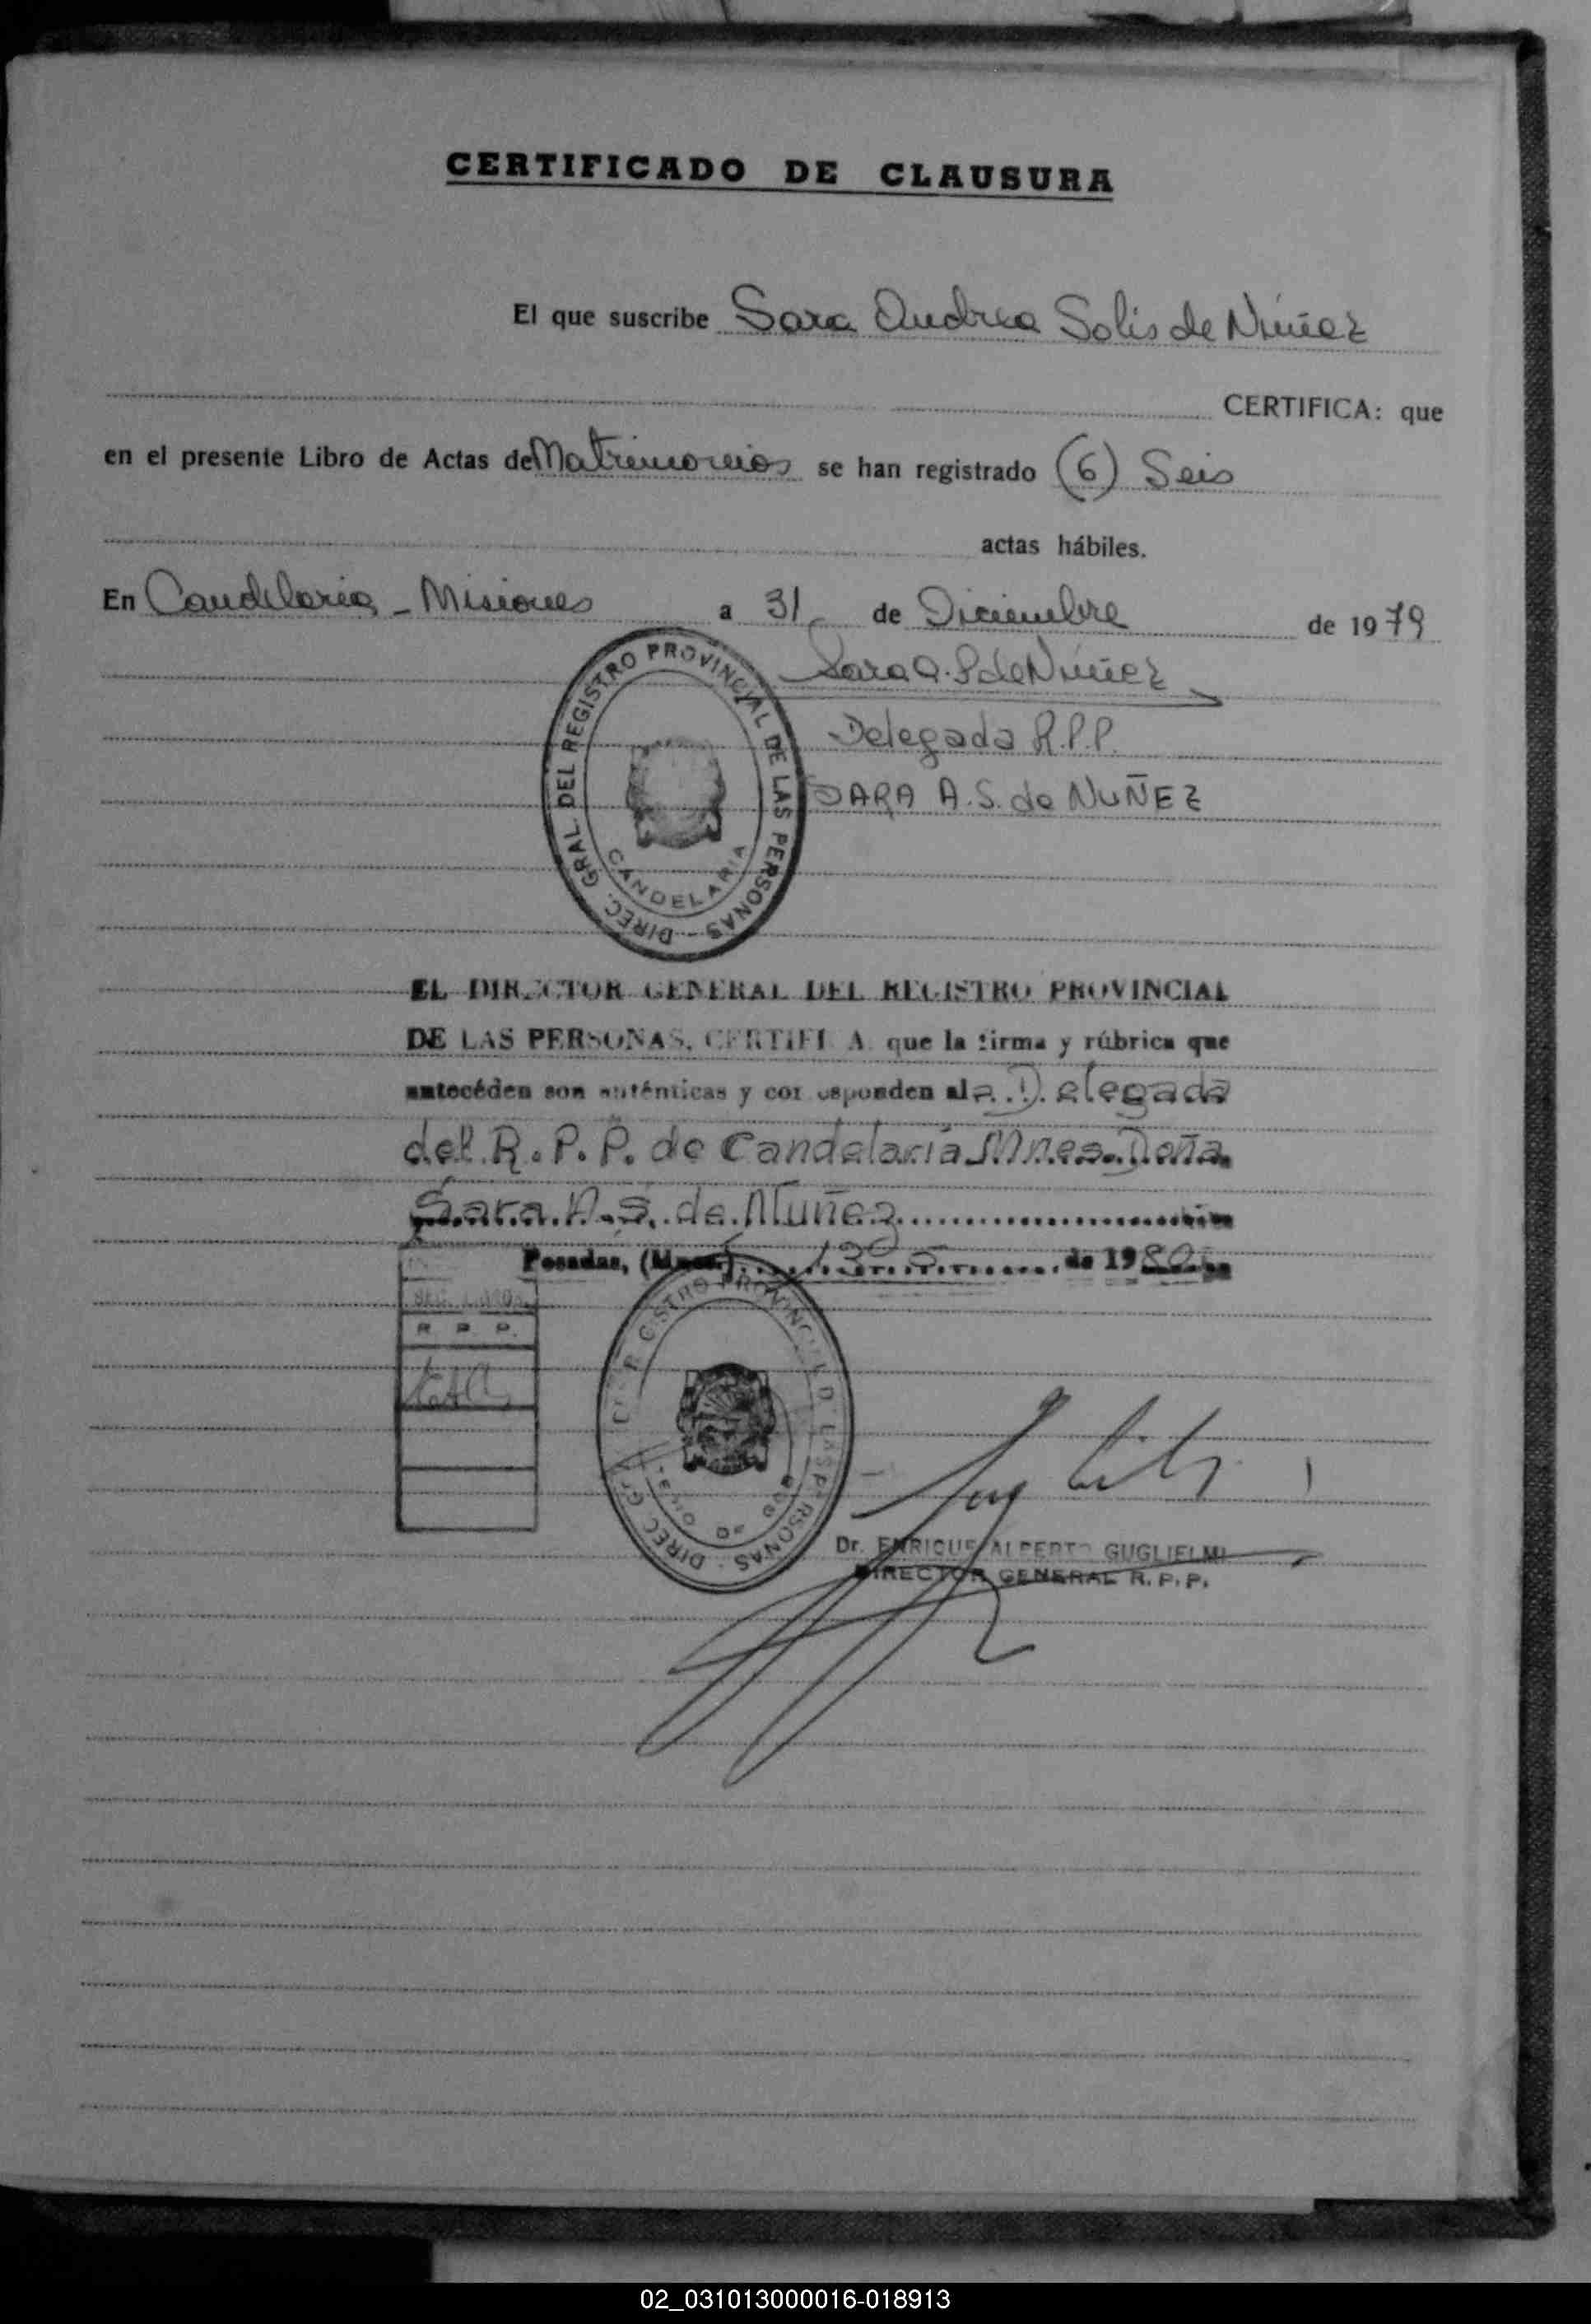 CERTIFICADO DE CLAUSURA
El que suscribe Sara Andrea Solis de Núñez
CERTIFICA: que
en el presente Libro de Actas de Matrimonios se han registrado (6) Seis
actas hábiles.
En Candelaria - Misiones a 31 de Diciembre de 1979
Sara A. S de Núñez
Delegada R.P.P.
SARA A. S. de NUÑEZ
DIREC. GRAL. DEL REGISTRO PROVINCIAL DE LAS PERSONAS -
CANDELARIA
EL DIRECTOR GENERAL DEL REGISTRO PROVINCIAL
DE LAS PERSONAS, CERTIFICA que la firma y rúbrica que
antecéden son auténticas y corresponden al a Delegada
del R.P.P. de Candelaria Mnes. Doña
Sara A. S. de Nuñez
Posadas, (Mnes.) de 1980
R P P.
DIREC GRAL REGISTRO PROVINCIAL DE LAS PERSONAS -
Dr. ENRIQUE ALBERTO GUGLIELMI
DIRECTOR GENERAL R. P. P.
02_031013000016-018913